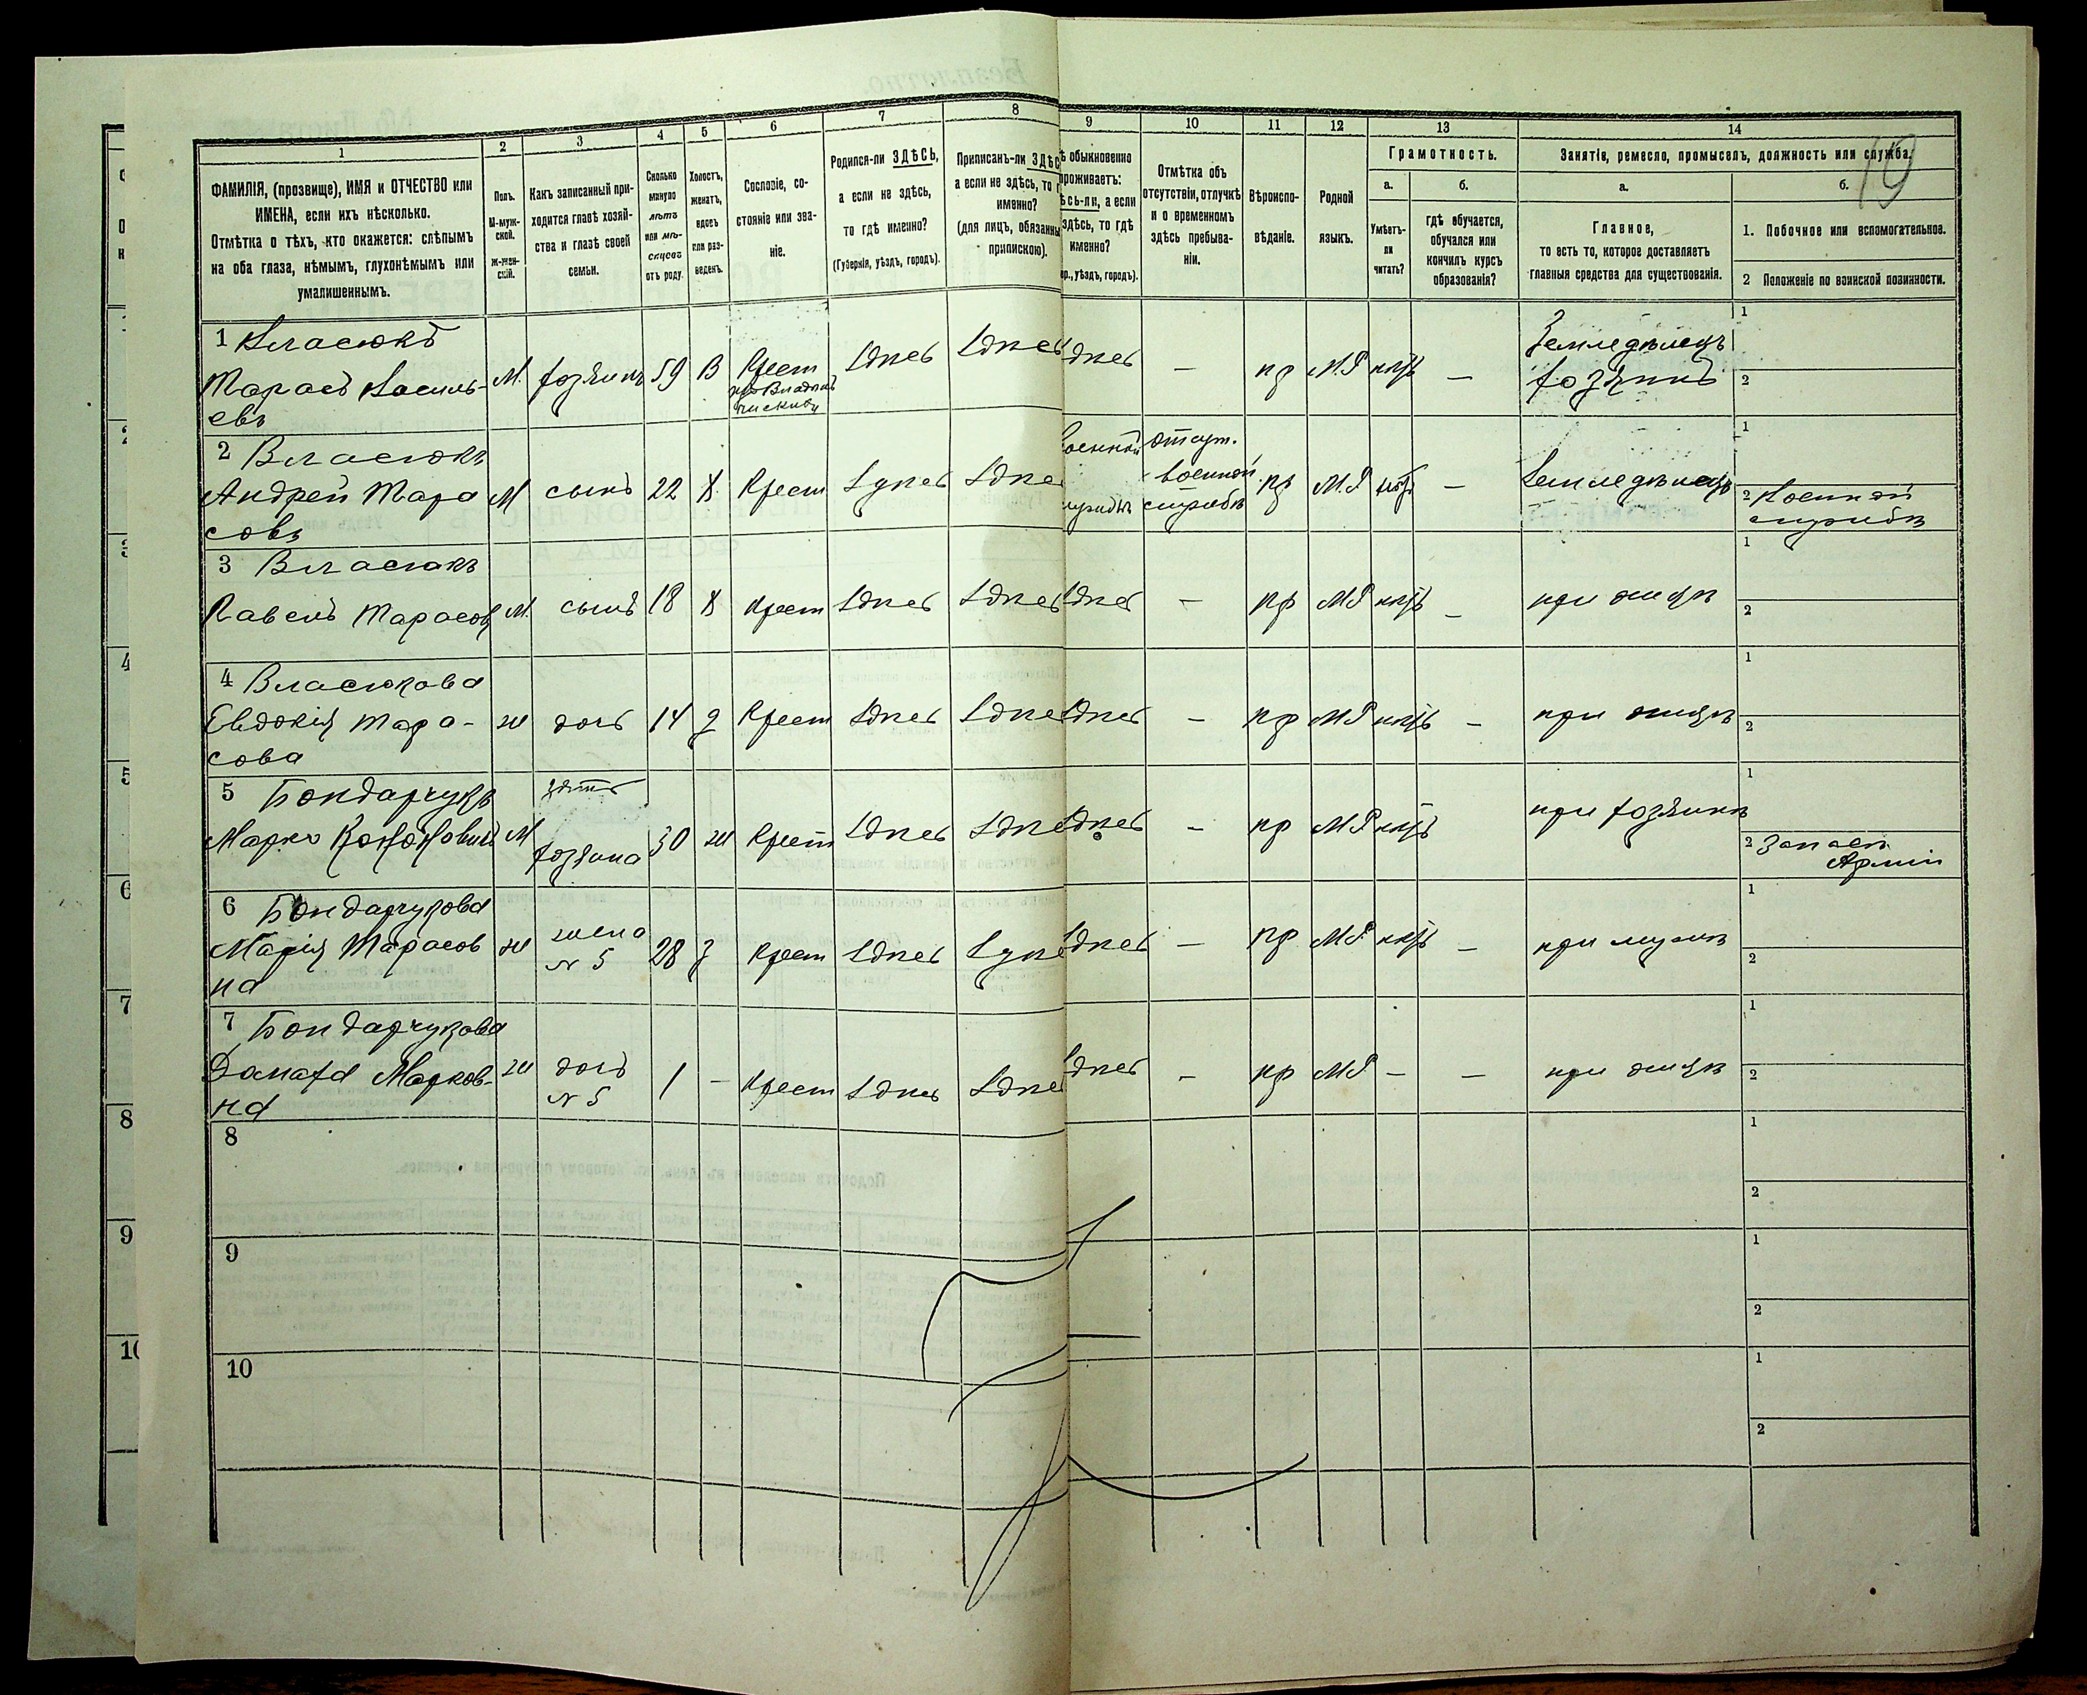 1 2 3 4 5 6 7 8 9 10 11 12 13 14
19
ФАМИЛІЯ, (прозвище), ИМЯ и ОТЧЕСТВО или
ИМЕНА, если ихъ нѣсколько.
Отмѣтка о тѣхъ, кто окажется: слѣпымъ
на оба глаза, нѣмымъ, глухонѣмымъ или
умалишеннымъ.
Полъ.
М-муж-
ской.
Ж-жен-
скій.
Какъ записанный при-
ходится главѣ хозяй-
ства и главѣ своей
семьи.
Сколько
минуло
лѣтъ
или мѣ-
сяцевъ
отъ роду.
Холостъ,
женатъ,
вдовъ
или раз-
веденъ.
Сословіе, со-
стояніе или зва-
ніе.
Родился-ли ЗДѢСЬ,
а если не здѣсь,
то гдѣ именно?
(Губернія, уѣздъ, городъ).
Приписанъ-ли ЗДѢС
а если не здѣсь, то г
именно?
(для лицъ, обязанны
припискою).
ѣ обыкновенно
проживаетъ:
ѣсь-ли, а если
здѣсь, то гдѣ
именно?
ер., уѣздъ, городъ).
Отмѣтка объ
отсутствіи, отлучкѣ
и о временномъ
здѣсь пребыва-
ніи.
Вѣроиспо-
вѣданіе.
Родной
языкъ.
Грамотность.
а.
Умѣетъ-
ли
читать?
б.
гдѣ обучается,
обучался или
кончилъ курсъ
образованія?
Занятіе, ремесло, промыселъ, должность или служба.
а.
Главное,
то есть то, которое доставляетъ
главныя средства для существованія.
б.
1. Побочное или вспомогательное.
2 Положеніе по воинской повинности.
1 Власюкъ
Тарасъ Василь-
евъ
М. хозяинъ 59 В Крест здесь здесь здесь — пр М.Р нетъ —
Земледѣлецъ
хозяинъ
1
2
2 Власюкъ
Андрей Тара
совъ
М сынъ 22 Х Крест здесь здесь
военной
службѣ
отсут.
военной
службѣ
пр М.Р —
Земледѣлецъ
1
2 Военной
службѣ
3 Власюкъ
Павелъ Тарасовъ М. сынъ 18 Х Крест здесь здесь здесь — пр М.Р нетъ — при отцѣ
1
2
4 Власюкова
Евдокія Тара-
сова
ж дочь 14 Д Крест здесь здесь здесь — пр М.Р нетъ — при отцѣ
1
2
5 Бондарчукъ
Марко Кононовичъ М
зять
хозяина
30 ж Крест здесь здесь здесь — пр М.Р нетъ при хозяинѣ
1
2 Запасн
Арміи
6 Бондарчукова
Марія Тарасов
на
ж
жена
№ 5
28 З Крест здесь здесь здесь — пр М.Р нетъ — при мужѣ
1
2
7 Бондарчукова
Домаха Марков-
на
ж
дочь
№ 5
1 — Крест здесь здесь здесь — пр М.Р — — при отцѣ
1
2
8
1
2
9
1
2
10
1
2